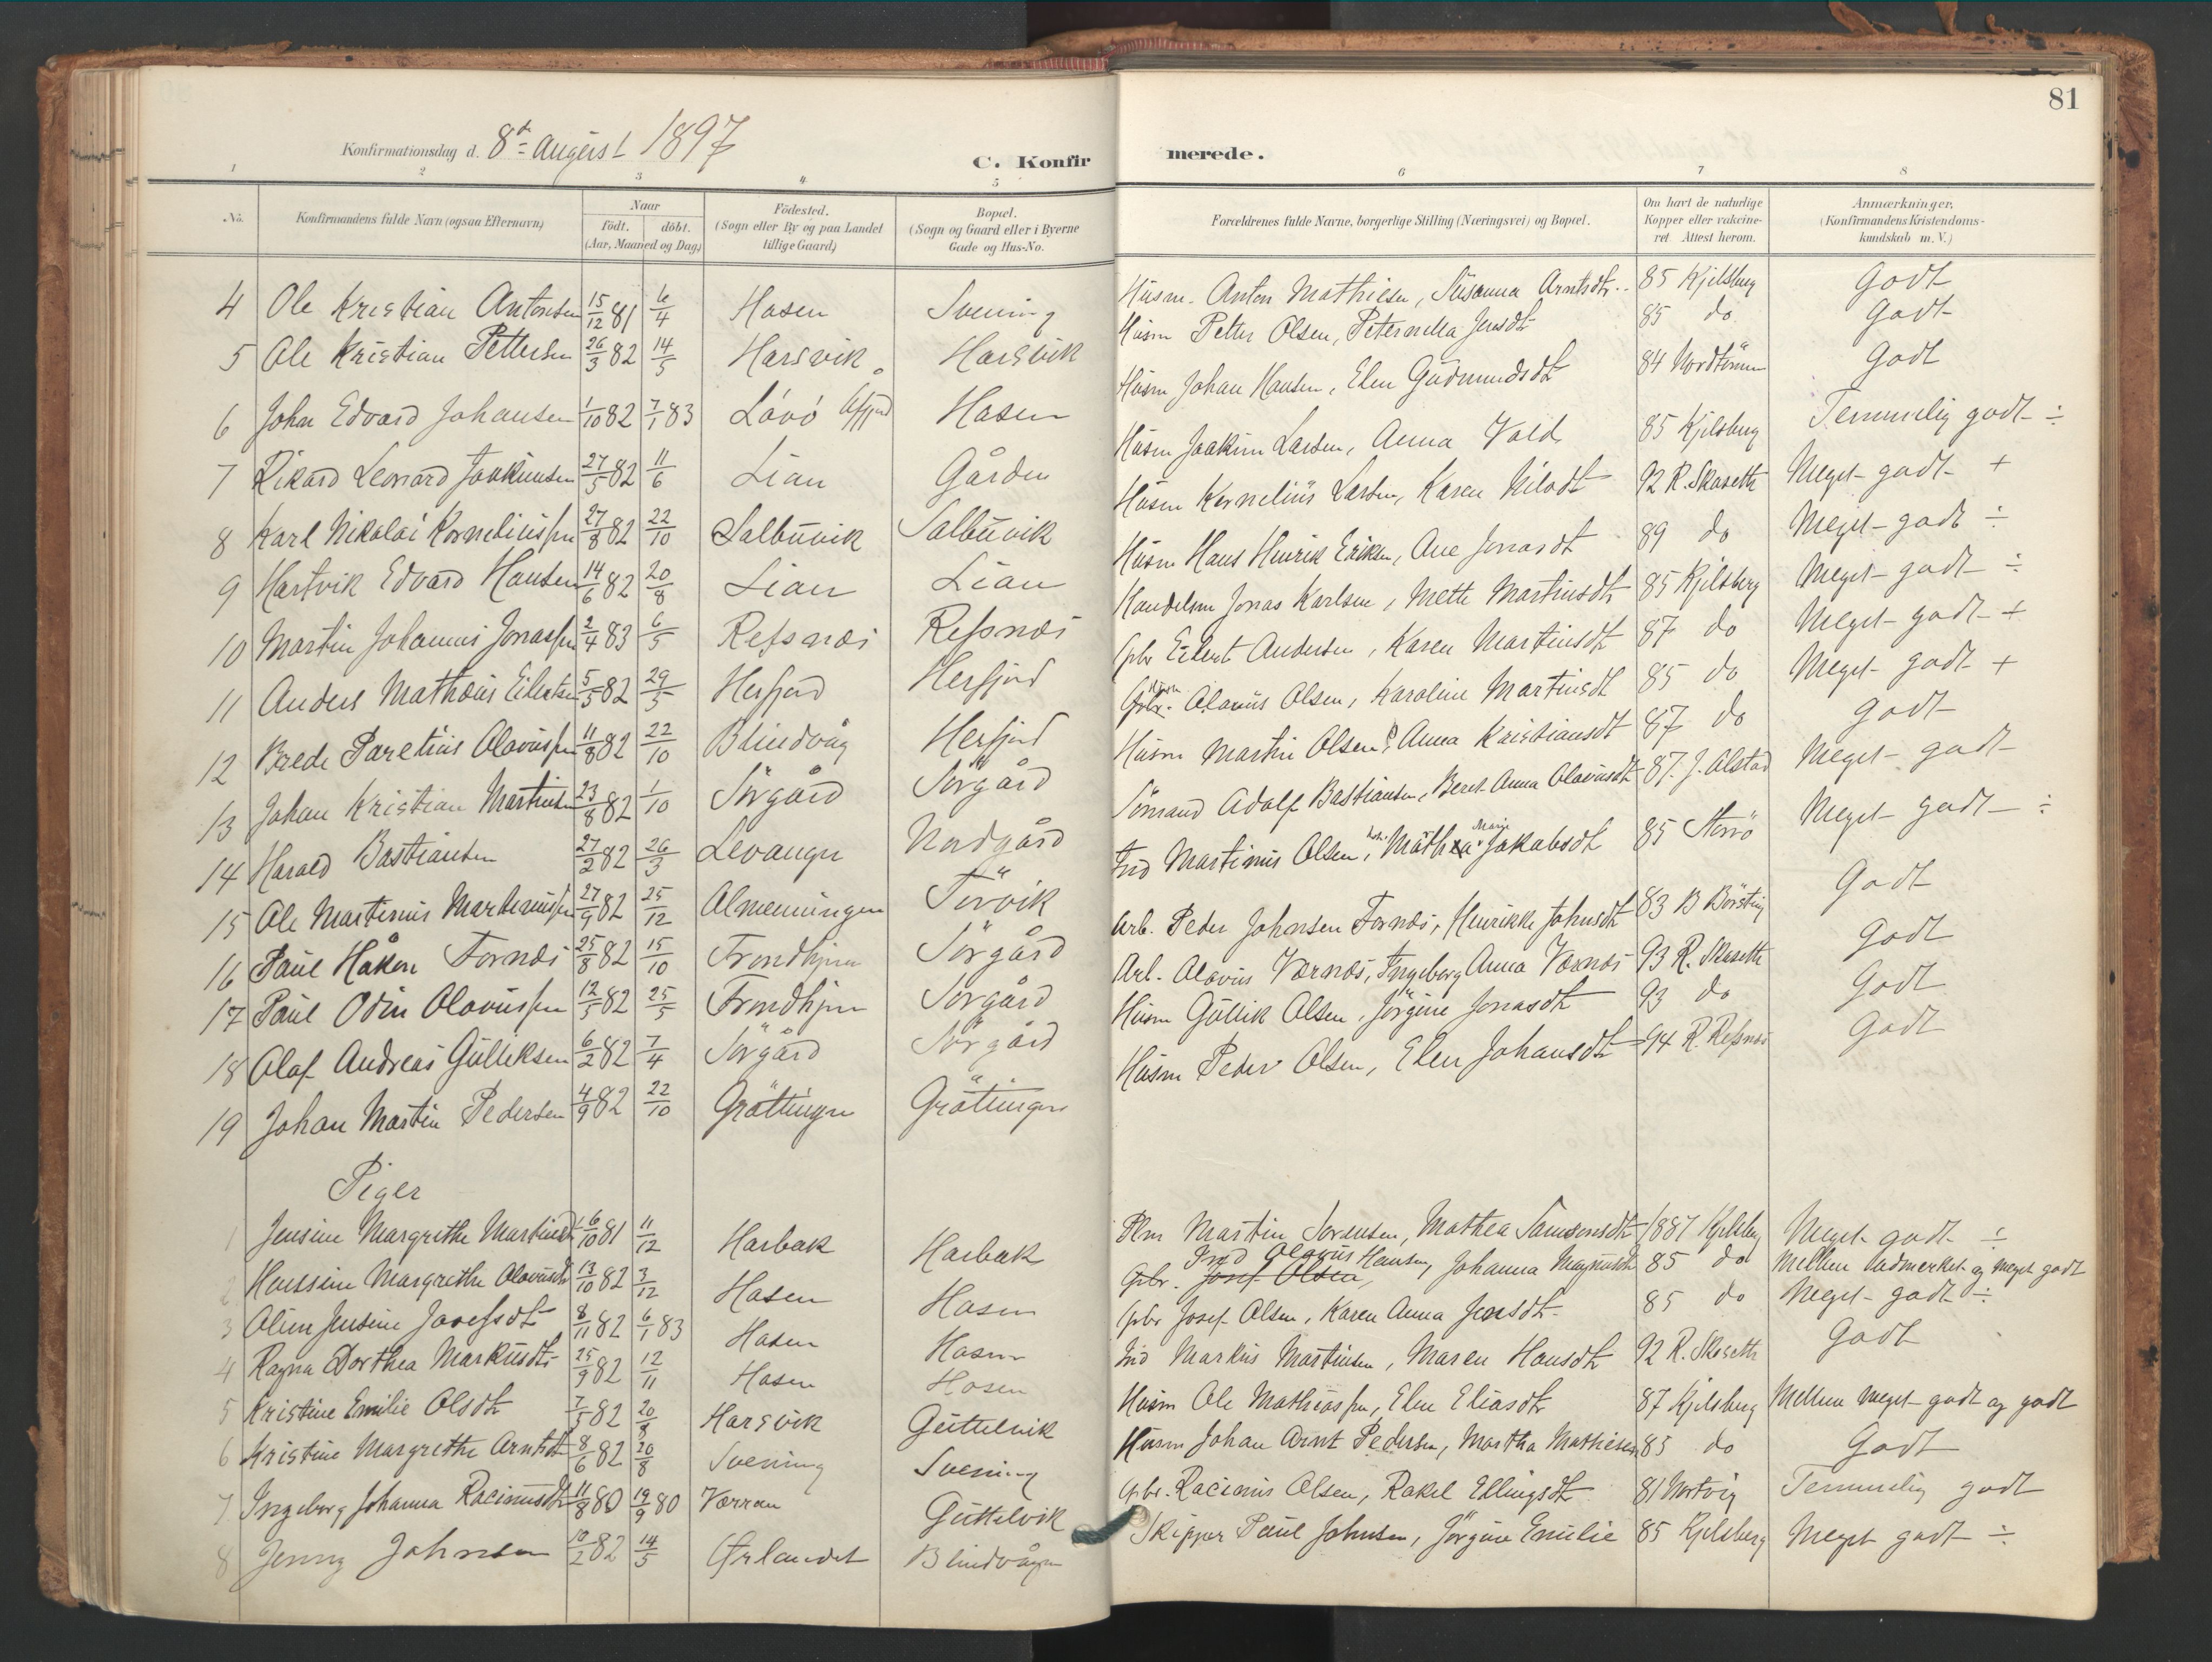 81
Konfirmationsdag d. 8de August 1897
C. Konfirmerede.
1 2 3 4 5 6 7 8
No. Konfirmandens fulde Navn (ogsaa Efternavn) Naar födt. döbt. (Aar, Maaned og Dag) Födested. (Sogn eller By og paa Landet tillige Gaard) Bopæl. (Sogn og Gaard eller i Byerne Gade og Hus-No. Forældrenes fulde Navne, borgerlige Stilling (Næringsvei) og Bopæl. Om havt de naturlige Kopper eller vakcineret. Attest herom. Anmærkninger, (Konfirmandens Kristendomskundskab m. V.)
4 Ole Kristian Antonsen 15/12 81 6/4 Hasen Svening Husm. Anton Mathiesen, Susanna Arntsdtr. 85 Kjelsberg Godt
5 Ole Kristian Pettersen 26/3 82 14/5 Harsvik Harsvik Husm Petter Olsen, Peternella Jensdt 85 do Godt
6 John Edvard Johansen 1/10 82 7/1 83 Lövö Åfjord Hasen Husm Johan Hansen, Elen Gudmundsdt 84 Godt
7 Rikard Leonard Joakimsen 27/5 82 11/6 Lian Gården Husm Joakim Larsen, Anna Vold 85 Kjelsberg Temmelig godt ÷
8 Karl Nikolai Korneliussen 27/8 82 22/10 Salbuvik Salbuvik Husm Kornelius Larsen, Karen Nilsdt 92 R. Skaseth Meget godt +
9 Hartvik Edvard Hansen 14/6 82 20/8 Lian Lian Husm Hans Henrik Eriksen, Ane Jonasdt 89 do Meget godt ÷
10 Martin Johannes Jonassen 2/4 83 6/5 Refsnæs Refsnæs Handelsm Jonas Karlsen, Mette Martinsdt 85 Kjelsberg Meget godt ÷
11 Anders Mathæus Eilertsen 5/5 82 29/5 Herfjord Herfjord Gbr Eilert Andersen, Karen Martinsdt 87 do Meget godt +
12 Brede Paretius Olavussen 11/8 82 22/10 Blindvåg Herfjord Gbr. Olavus Olsen, Karoline Martinsdt 85 do Meget godt +
13 Johan Kristian Martinsen 23/8 82 1/10 Sörgård Sörgård Husm Martin Olsen, Anna Kristiansdt 87 do Godt
14 Harald Bastiansen 27/2 82 26/3 Levanger Nordgård Sömand Adolf Bastiansen, Beret Anna Olavusdt 87. J. Alstad Meget godt
15 Ole Martinus Martinussen 27/9 82 25/12 Almenningen Tørvik Ind Martinus Olsen, Mathea Marie Jakobsdt 85 Storö Meget godt ÷
16 Paul Håkon Fornæs 25/8 82 15/10 Trondhjem Sörgård Arb. Peder Johnsen Fornæs, Henrikke Johnsdt 83 B Börsting Godt
17 Paul Odin Olavussen 12/5 82 25/5 Trondhjem Sörgård Arb. Olavus Værnæs, Ingeborg Anna Værnæs 93 R. Skaseth Godt
18 Olaf Andreas Gulleksen 6/2 82 7/4 Sörgård Sörgård Husm Gullik Olsen, Jörgine Jonasdt 93 do Godt
19 Johan Martin Pedersen 4/9 82 22/10 Gröttingen Gröttingen Husm Peder Olsen, Elen Johansdt 94 R. Refsnæs Godt
Piger
1 Jensine Margrethe Martinsd 16/10 81 11/12 Harbak Harbak Plm Martin Sørensen, Mathea Samsonsdt 1887 Kjelsberg Meget godt ÷
2 Hanssine Margrethe Olavusdt 13/10 82 3/12 Hasen Hasen Gbr. Josef Olsen, Ind Olavus Hansen, Johanna Magnusdt 85 do Mellem Udmerket og meget godt
3 Oline Jensine Josefsdt 8/11 82 6/1 83 Hasen Hasen Gbr Josef Olsen, Karen Anna Jensdt 85 do Meget godt ÷
4 Ragna Dorthea Markusdt 25/9 82 12/11 Hasen Hasen Ind Markus Martinsen, Maren Hansdt 92 R. Skaseth Godt
5 Kristine Emilie Olsdt 7/5 82 20/8 Harsvik Guttelvik Husm Ole Mathiassen, Elen Eliasdt 87 Kjelsberg Mellem meget godt og godt
6 Kristine Margrethe Arntsdt 8/6 82 20/8 Svening Svening Husm Johan Arnt Pedersen, Martha Mathiesen 85 do Godt
7 Ingeborg Johanna Racinusdt 11/8 80 19/9 80 Værran Guttelvik Gbr. Racinus Olsen, Rakel Ellingsdt 81 Temmelig godt
8 Jenny Johnsen 10/2 82 14/5 Ørlandet Blindvågen Skipper Paul Johnsen, Jörgine Emilie 85 Kjelsberg Meget godt ÷